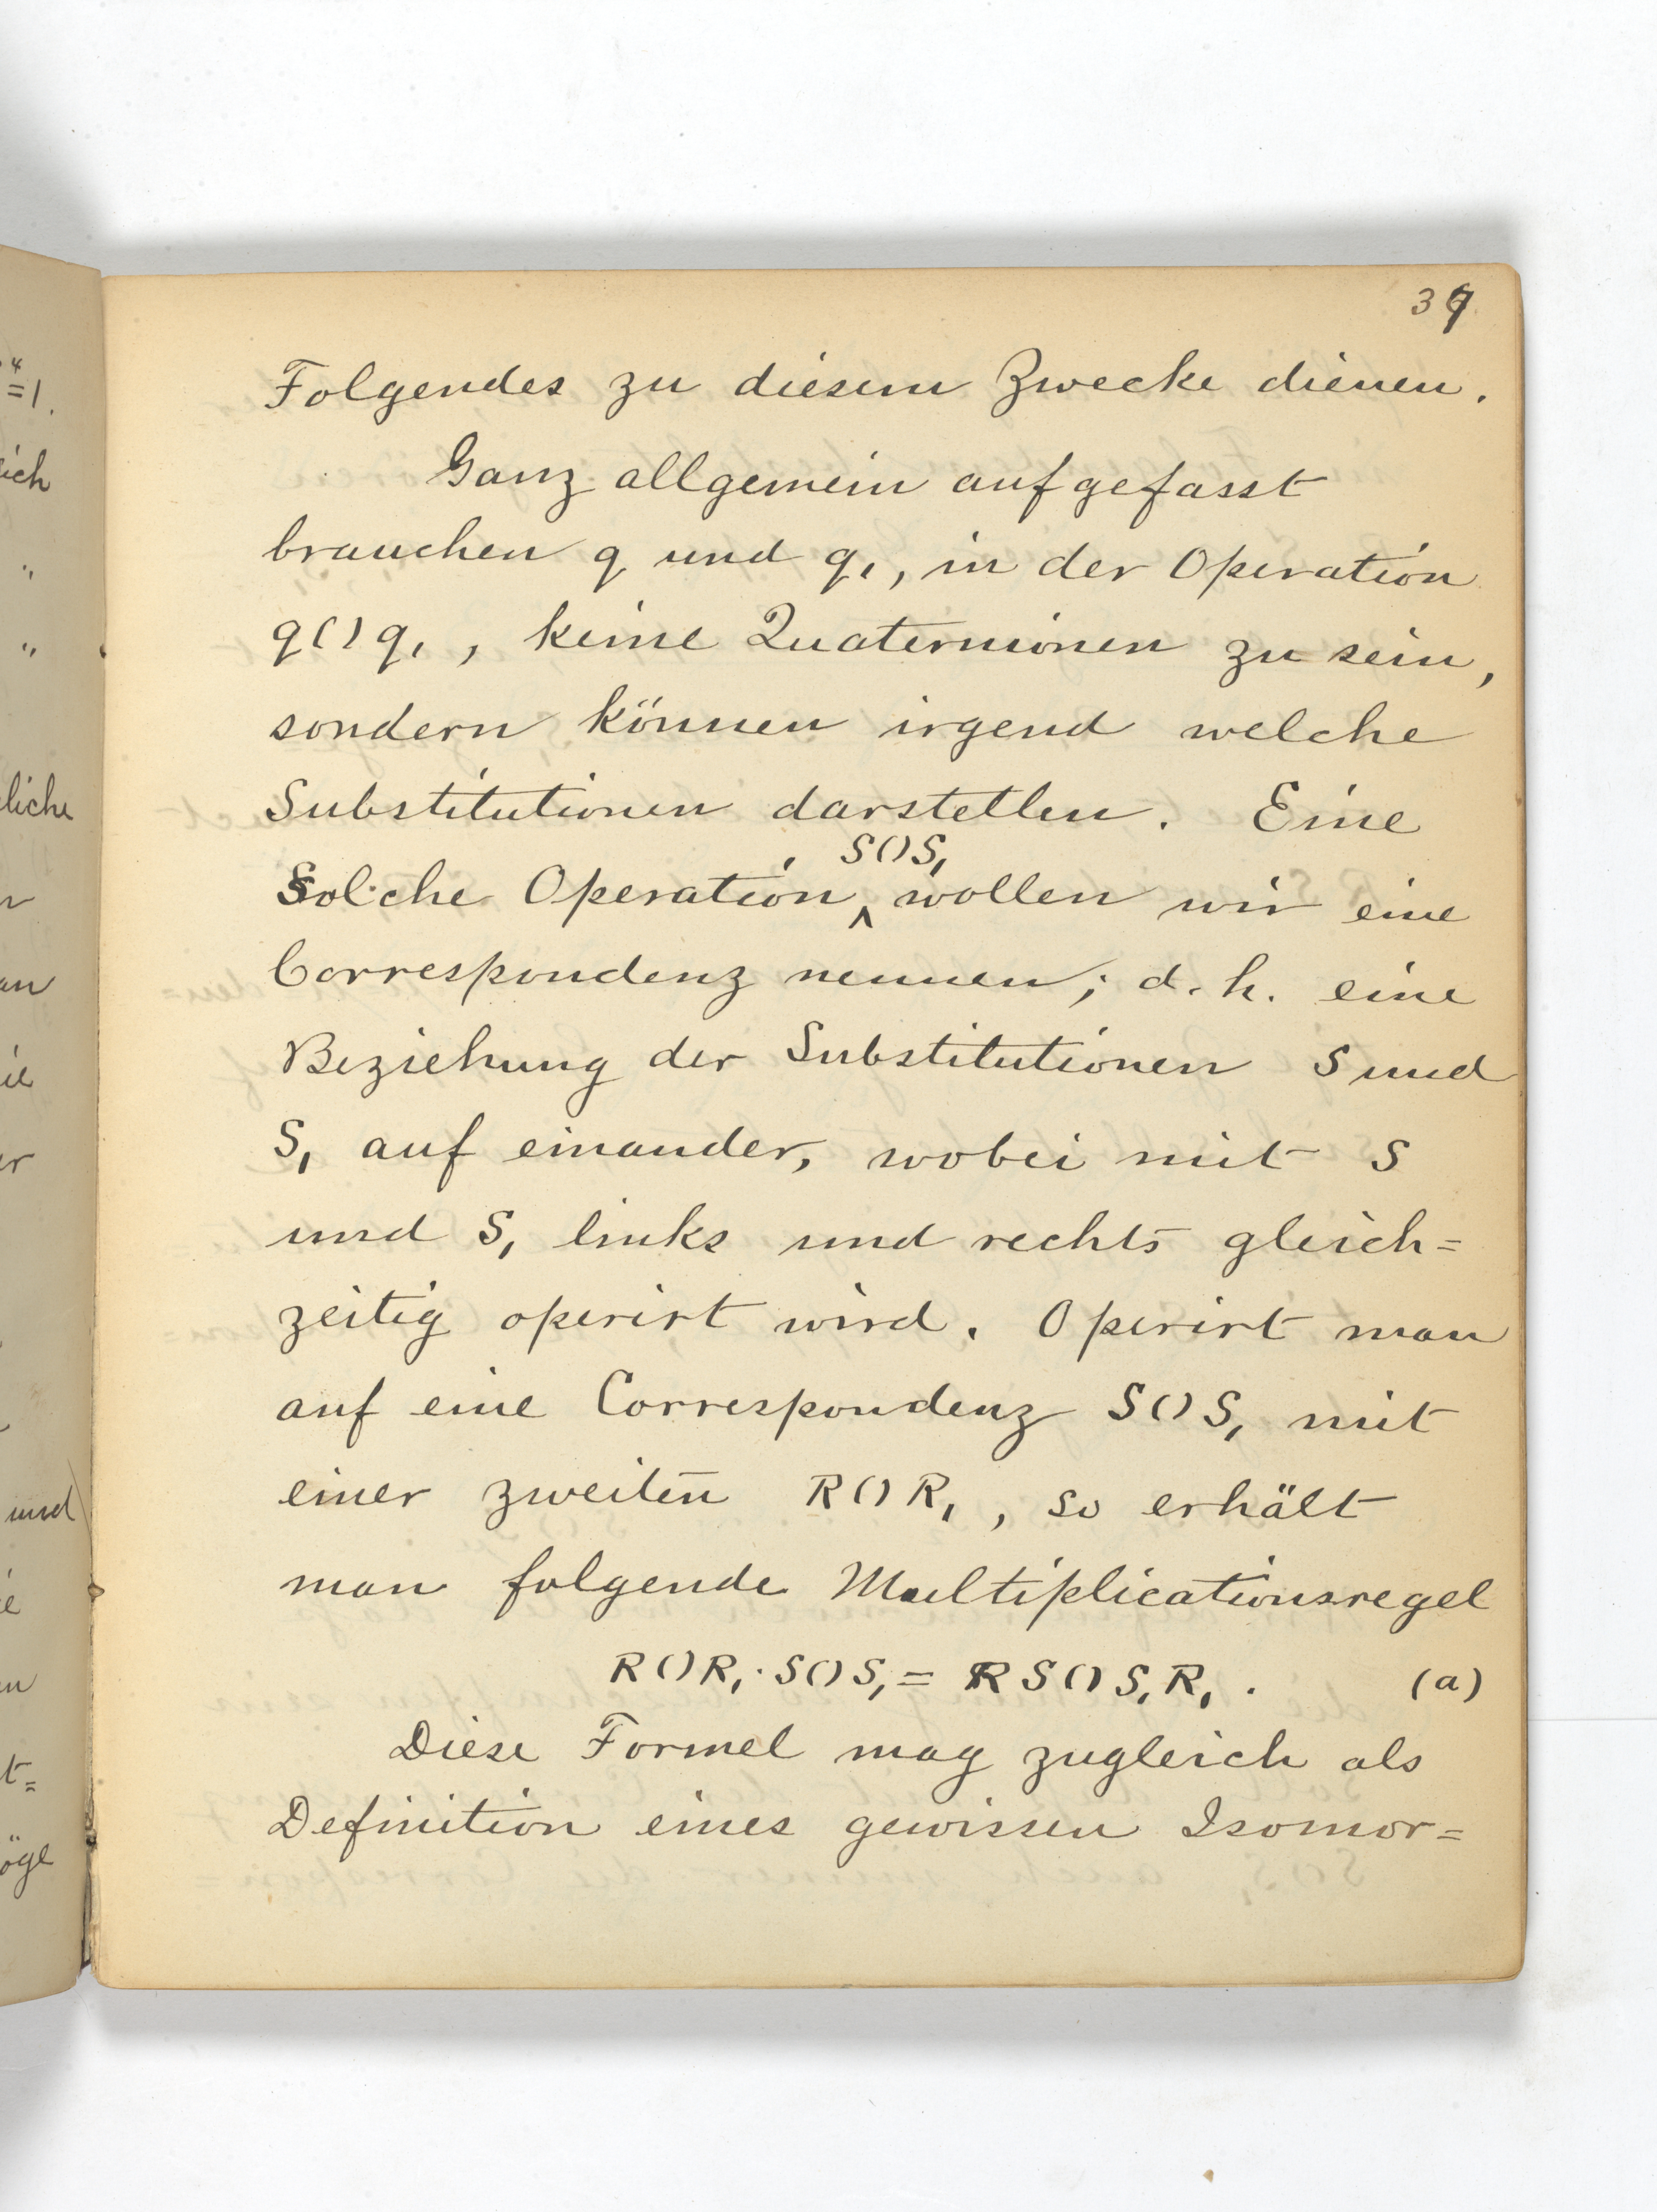 37
Folgendes zu diesem Zwecke dienen.
Ganz allgemein aufgefasst
brauchen q und q₁, in der Operation
q()q₁, keine Quaternionen zu sein,
sondern können irgend welche
Substitutionen darstellen. Eine
S()S₁
solche Operation ‸ wollen wir eine
Correspondenz nennen; d. h. eine
Beziehung der Substitutionen S und
S₁ auf einander, wobei mit S
und S₁ links und rechts gleich=
zeitig operirt wird. Operirt man
auf eine Correspondenz S()S₁ mit
einer zweiten R()R₁, so erhält
man folgende Multiplicationsregel
R()R₁·S()S₁ = RS()S₁R₁. (a)
Diese Formel mag zugleich als
Definition eines gewissen Isomor=
4
=1.
ich
"
"
liche
an
er
und
t=
öge